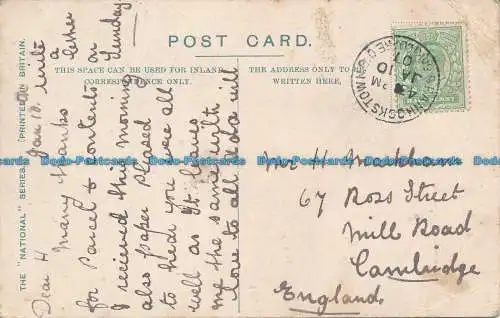 POST CARD.
THIS SPACE CAN BE USED FOR INLAND
CORRESPONDENCE ONLY.
THE ADDRESS ONLY TO BE
WRITTEN HERE.
THE "NATIONAL" SERIES. PRINTED IN BRITAIN.
Jan 10.
Dear H
Many thanks
for Parcel & contents
I recieved this morning
also paper pleased
to hear you were all
well as it leaves
me the same with
love to all Ada will
write
a
letter
on
Sunday
JA 10
07
Mr H Markham
67 Ross Street
Mill Road
Cambridge
England.
Dodo-Postcards Dodo-Postcards Dodo-Postcards Dodo-Postcards